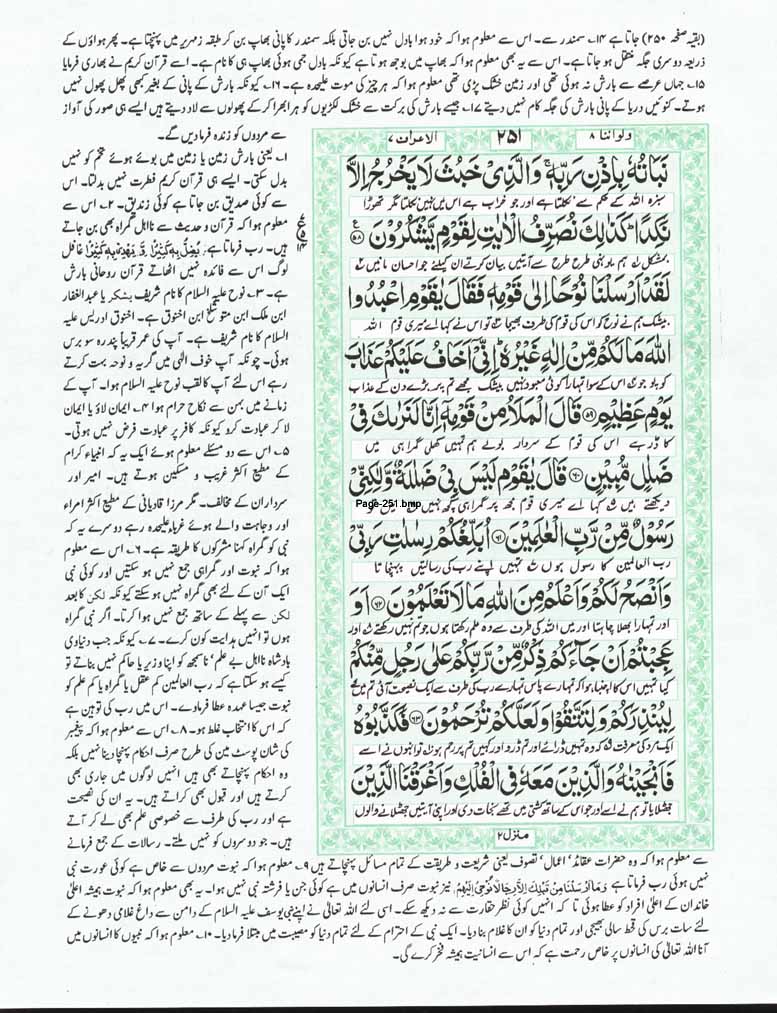 (بقیہ صفحہ ۲۵۰) جاتا ہے ۱۴۔ سمندر سے۔ اس سے معلوم ہوا کہ خود ہوا بادل نہیں بن جاتی بلکہ سمندر کا پانی بھاپ بن کر طبقہ زمہریر میں پہنچتا ہے۔ پھر ہواؤں کے
ذریعہ دوسری جگہ منتقل ہو جاتا ہے۔ اس سے یہ بھی معلوم ہوا کہ بھاپ میں بوجھ ہوتا ہے کیونکہ بادل جمی ہوئی بھاپ ہی کا نام ہے۔ اسے قرآن کریم نے بھاری فرمایا
۱۵۔ جہاں عرصے سے بارش نہ ہوئی تھی اور زمین خشک پڑی تھی معلوم ہوا کہ ہر چیز کی موت علیحدہ ہے۔ ۱۶۔ کیونکہ بارش کے پانی کے بغیر کبھی پھل پھول نہیں
ہوتے۔ کنوئیں دریا کے پانی بارش کی جگہ کام نہیں دیتے ۱۷۔ جیسے بارش کی برکت سے خشک لکڑیوں کو ہرا بھرا کر کے پھولوں سے لاد دیتے ہیں ایسے ہی صور کی آواز
سے مردوں کو زندہ فرما دیں گے۔
ولواننا ۸
۲۵۱
الاعراف ۷
نَبَاتُهٗ بِاِذْنِ رَبِّهٖ ۚ وَالَّذِیْ خَبُثَ لَا یَخْرُجُ اِلَّا
سبزہ اللہ کے حکم سے نکلتا ہے اور جو خراب ہے اس میں نہیں نکلتا مگر تھوڑا
نَكِدًا ؕ كَذٰلِكَ نُصَرِّفُ الْاٰیٰتِ لِقَوْمٍ یَّشْكُرُوْنَ ﴿۵۸﴾
بمشکل ہم یونہی طرح طرح سے آیتیں بیان کرتے ان کیلئے جو احسان مانیں
لَقَدْ اَرْسَلْنَا نُوْحًا اِلٰی قَوْمِهٖ فَقَالَ یٰقَوْمِ اعْبُدُوا
بیشک ہم نے نوح کو اس کی قوم کی طرف بھیجا تو اس نے کہا اے میری قوم اللہ
اللّٰهَ مَا لَكُمْ مِّنْ اِلٰهٍ غَیْرُهٗ ؕ اِنِّیْۤ اَخَافُ عَلَیْكُمْ عَذَابَ
کو پوجو اس کے سوا تمہارا کوئی معبود نہیں بیشک مجھے تم پر بڑے دن کے عذاب
یَوْمٍ عَظِیْمٍ ﴿۵۹﴾ قَالَ الْمَلَاُ مِنْ قَوْمِهٖۤ اِنَّا لَنَرٰىكَ فِیْ
کا ڈر ہے اس کی قوم کے سردار بولے ہم تمہیں کھلی گمراہی میں
ضَلٰلٍ مُّبِیْنٍ ﴿۶۰﴾ قَالَ یٰقَوْمِ لَیْسَ بِیْ ضَلٰلَةٌ وَّلٰكِنِّیْ
دیکھتے ہیں کہا اے میری قوم مجھ میں گمراہی کچھ نہیں میں تو
Page-251.bmp
رَسُوْلٌ مِّنْ رَّبِّ الْعٰلَمِیْنَ ﴿۶۱﴾ اُبَلِّغُكُمْ رِسٰلٰتِ رَبِّیْ
رب العالمین کا رسول ہوں تمہیں اپنے رب کی رسالتیں پہنچاتا
وَاَنْصَحُ لَكُمْ وَاَعْلَمُ مِنَ اللّٰهِ مَا لَا تَعْلَمُوْنَ ﴿۶۲﴾ اَوَ
اور تمہارا بھلا چاہتا اور میں اللہ کی طرف سے وہ علم رکھتا ہوں جو تم نہیں رکھتے اور
عَجِبْتُمْ اَنْ جَآءَكُمْ ذِكْرٌ مِّنْ رَّبِّكُمْ عَلٰی رَجُلٍ مِّنْكُمْ
کیا تمہیں اس کا اچنبھا ہوا کہ تمہارے پاس تمہارے رب کی طرف سے ایک نصیحت آئی تم میں کے
لِیُنْذِرَكُمْ وَلِتَتَّقُوْا وَلَعَلَّكُمْ تُرْحَمُوْنَ ﴿۶۳﴾ فَكَذَّبُوْهُ
ایک مرد کی معرفت کہ وہ تمہیں ڈرائے اور تم ڈرو اور کہیں تم پر رحم ہو تو انہوں نے اسے
فَاَنْجَیْنٰهُ وَالَّذِیْنَ مَعَهٗ فِی الْفُلْكِ وَاَغْرَقْنَا الَّذِیْنَ
جھٹلایا تو ہم نے اسے اور جو اس کے ساتھ کشتی میں تھے نجات دی اور اپنی آیتیں جھٹلانے والوں
منزل ۲
ع
۱۴
۱۔ یعنی بارش زمین یا زمین میں بوئے ہوئے تخم کو نہیں
بدل سکتی۔ ایسے ہی قرآن کریم فطرت نہیں بدلتا۔ اس
سے کوئی صدیق بن جاتا ہے کوئی زندیق۔ ۲۔ اس سے
معلوم ہوا کہ قرآن و حدیث سے نااہل گمراہ بھی بن جاتے
ہیں۔ رب فرماتا ہے یُضِلُّ بِهٖ كَثِیْرًا وَّ یَهْدِیْ بِهٖ كَثِیْرًا غافل
لوگ اس سے فائدہ نہیں اٹھاتے قرآن روحانی بارش
ہے۔ ۳۔ نوح علیہ السلام کا نام شریف یشکر یا عبدالغفار
ابن ملک ابن متوشلخ ابن اخنوق ہے۔ اخنوق ادریس علیہ
السلام کا نام شریف ہے۔ آپ کی عمر تقریباً پندرہ سو برس
ہوئی۔ چونکہ آپ خوف الٰہی میں گریہ و نوحہ بہت کرتے
رہے اس لئے آپ کا لقب نوح علیہ السلام ہوا۔ آپ کے
زمانے میں بہن سے نکاح حرام ہوا ۴۔ ایمان لاؤ یا ایمان
لا کر عبادت کرو کیونکہ کافر پر عبادت فرض نہیں ہوتی۔
۵۔ اس سے دو مسئلے معلوم ہوئے ایک یہ کہ انبیاء کرام
کے مطیع اکثر غریب و مسکین ہوتے ہیں۔ امیر اور
سرداران کے مخالف۔ مگر مرزا قادیانی کے مطیع اکثر امراء
اور وجاہت والے ہوئے غرباء علیحدہ رہے دوسرے یہ کہ
نبی کو گمراہ کہنا مشرکوں کا طریقہ ہے۔ ۶۔ اس سے معلوم
ہوا کہ نبوت اور گمراہی جمع نہیں ہو سکتیں اور کوئی نبی
ایک آن کے لئے بھی گمراہ نہیں ہو سکتے کیونکہ لکن کا بعد
لکن سے پہلے کے ساتھ جمع نہیں ہوا کرتا۔ اگر نبی گمراہ
ہوں تو انہیں ہدایت کون کرے۔ ۷۔ کیونکہ جب دنیاوی
بادشاہ نااہل بے علم' ناسمجھ کو اپنا وزیر یا حاکم نہیں بناتے تو
کیسے ہو سکتا ہے کہ رب العالمین کم عقل یا گمراہ یا کم علم کو
نبوت جیسا عہدہ عطا فرماوے۔ اس میں رب کی توہین ہے
کہ اس کا انتخاب غلط ہو۔ ۸۔ اس سے معلوم ہوا کہ پیغمبر
کی شان پوسٹ مین کی طرح صرف احکام پہنچا دینا نہیں بلکہ
وہ احکام پہنچاتے بھی ہیں انہیں لوگوں میں جاری بھی
کرتے ہیں اور قبول بھی کراتے ہیں۔ یہ ان کی نصیحت
ہے اور رب کی طرف سے خصوصی علم بھی لے کر آتے
ہیں۔ جو دوسروں کو نہیں ملتے۔ رسالات کے جمع فرمانے
سے معلوم ہوا کہ وہ حضرات عقائد' اعمال' تصوف یعنی شریعت و طریقت کے تمام مسائل پہنچاتے ہیں ۹۔ معلوم ہوا کہ نبوت مردوں سے خاص ہے کوئی عورت نبی
نہیں ہوئی رب فرماتا ہے وَمَاۤ اَرْسَلْنَا مِنْ قَبْلِكَ اِلَّا رِجَالًا نُّوْحِیْۤ اِلَیْهِمْ نیز نبوت صرف انسانوں میں ہے کوئی جن یا فرشتہ نبی نہیں ہوا۔ یہ بھی معلوم ہوا کہ نبوت ہمیشہ اعلیٰ
خاندان کے اعلیٰ افراد کو عطا ہوئی تا کہ انہیں کوئی نظر حقارت سے نہ دیکھ سکے۔ اسی لئے اللہ تعالیٰ نے اپنے نبی یوسف علیہ السلام کے دامن سے داغ غلامی دھونے کے
لئے سات برس کی قحط سالی بھیجی اور تمام دنیا کو ان کا غلام بنا دیا۔ ایک نبی کے احترام کے لئے تمام دنیا کو مصیبت میں مبتلا فرما دیا۔ ۱۰۔ معلوم ہوا کہ نبیوں کا انسانوں میں
آنا اللہ تعالیٰ کی انسانوں پر خاص رحمت ہے کہ اس سے انسانیت ہمیشہ فخر کرے گی۔